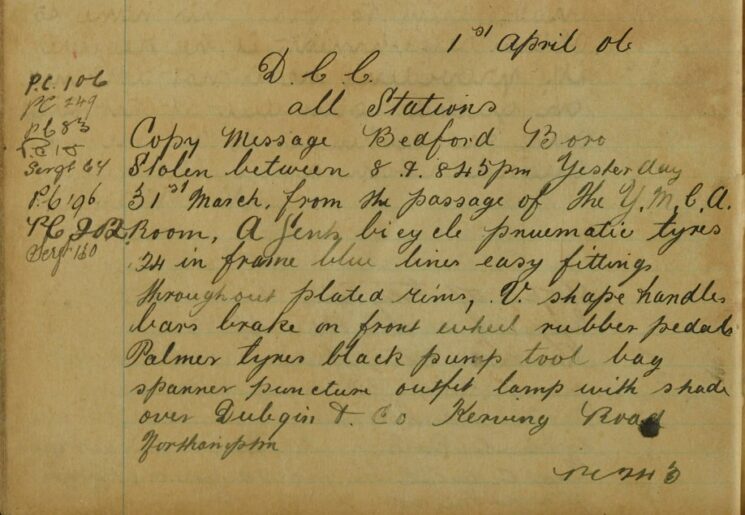 1st April 06
D. C. C.
all Stations
P.C. 106
PC 249
PC 83
P.C. 15
Sergt 64
P.C 196
P.C 202
Sergt 160
Copy Message Bedford Boro
Stolen between 8 & 845pm Yesterday
31st March, from the passage of the Y.M.C.A.
Room, A Gents bicycle pnuematic tyres
24 in frame blue lines easy fittings
throughout plated rims, V. shape handles
bars brake on front wheel rubber pedals
Palmer tyres black pump tool bag
spanner puncture outfit lamp with shade
over & Co Road
Northampton